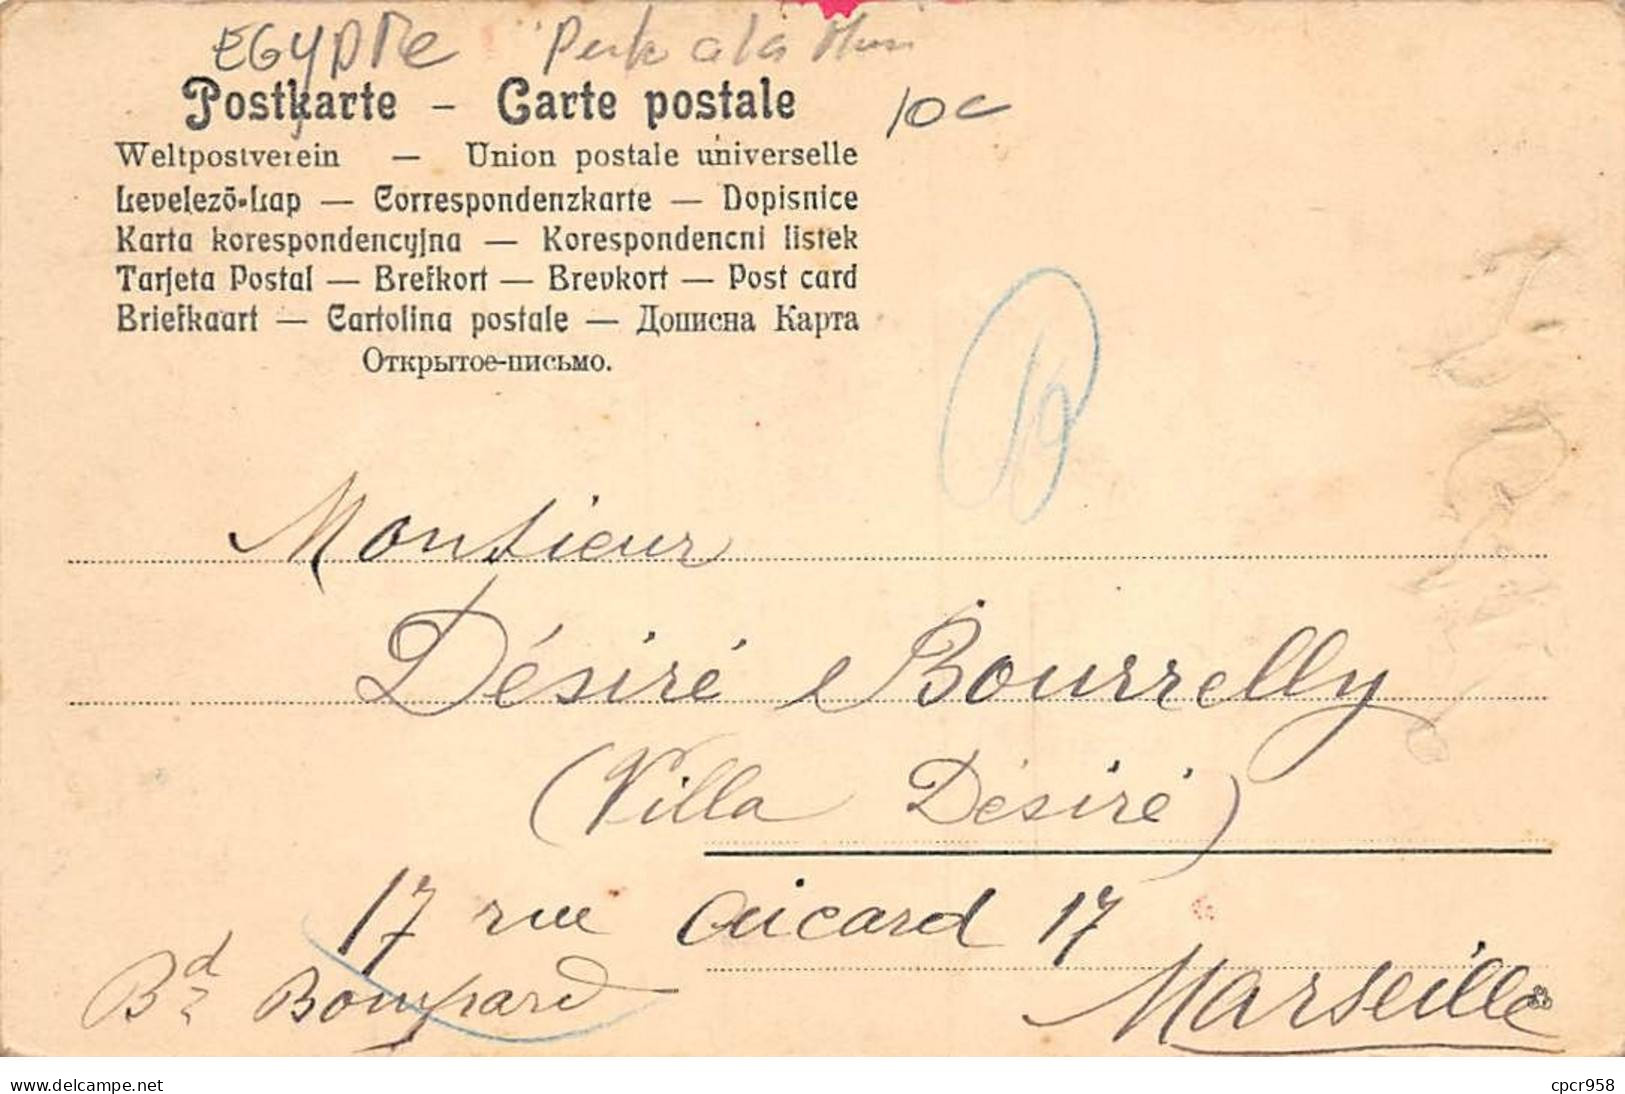 EGYPTE
Postkarte - Carte postale
10c
Weltpostverein — Union postale universelle
Levelezö-Lap — Correspondenzkarte — Dopisnice
Karta korespondencyjna — Korespondencni listek
Tarjeta Postal — Brefkort — Brevkort — Post card
Briefkaart — Cartolina postale — Дописна Карта
Открытое-письмо.
Monsieur
Désiré Bourrelly
(Villa Désiré)
17 rue Aicard 17
Bd Bompard
Marseille
www.delcampe.net
cpcr958